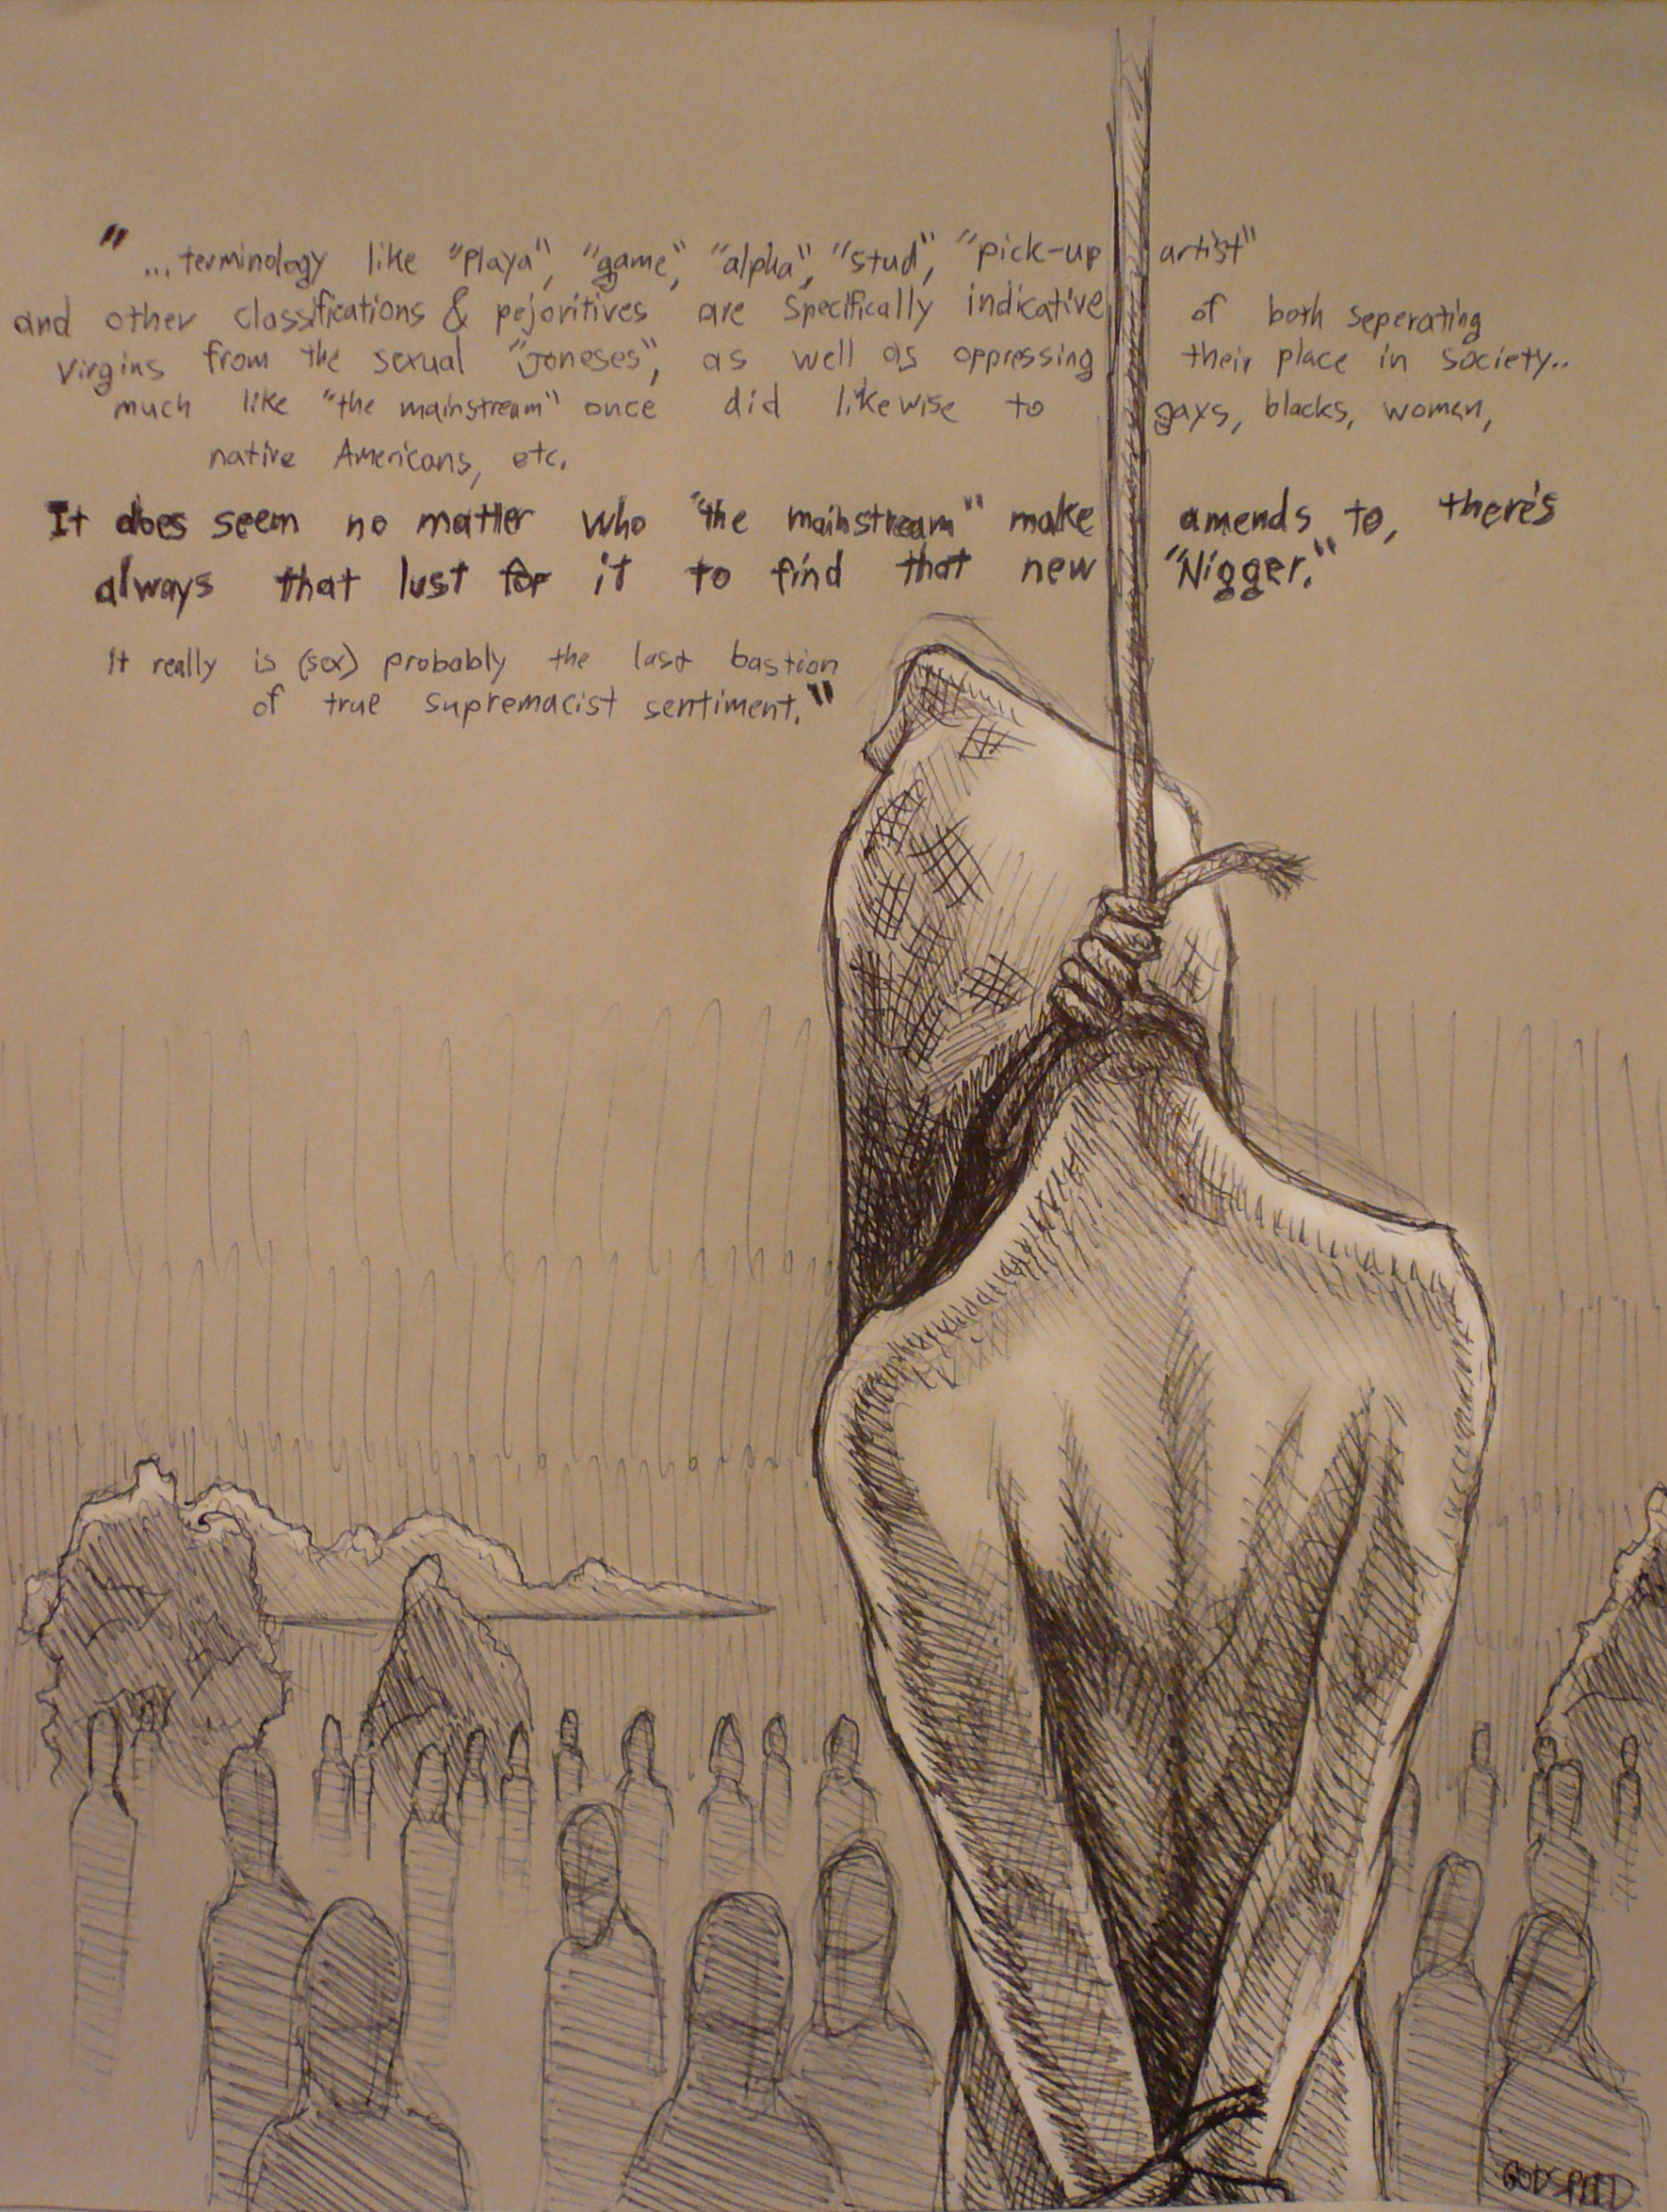 "...terminology like "Playa", "game", "alpha", "stud", "pick-up artist"
and other classifications & pejoritives are specifically indicative of both seperating
virgins from the sexual "Joneses", as well as oppressing their place in society..
much like "the mainstream" once did likewise to gays, blacks, women,
native Americans, etc.
It does seem no matter who "the mainstream" make amends to, there's
always that lust for it to find that new "Nigger."
It really is (sex) probably the last bastion
of true supremacist sentiment."